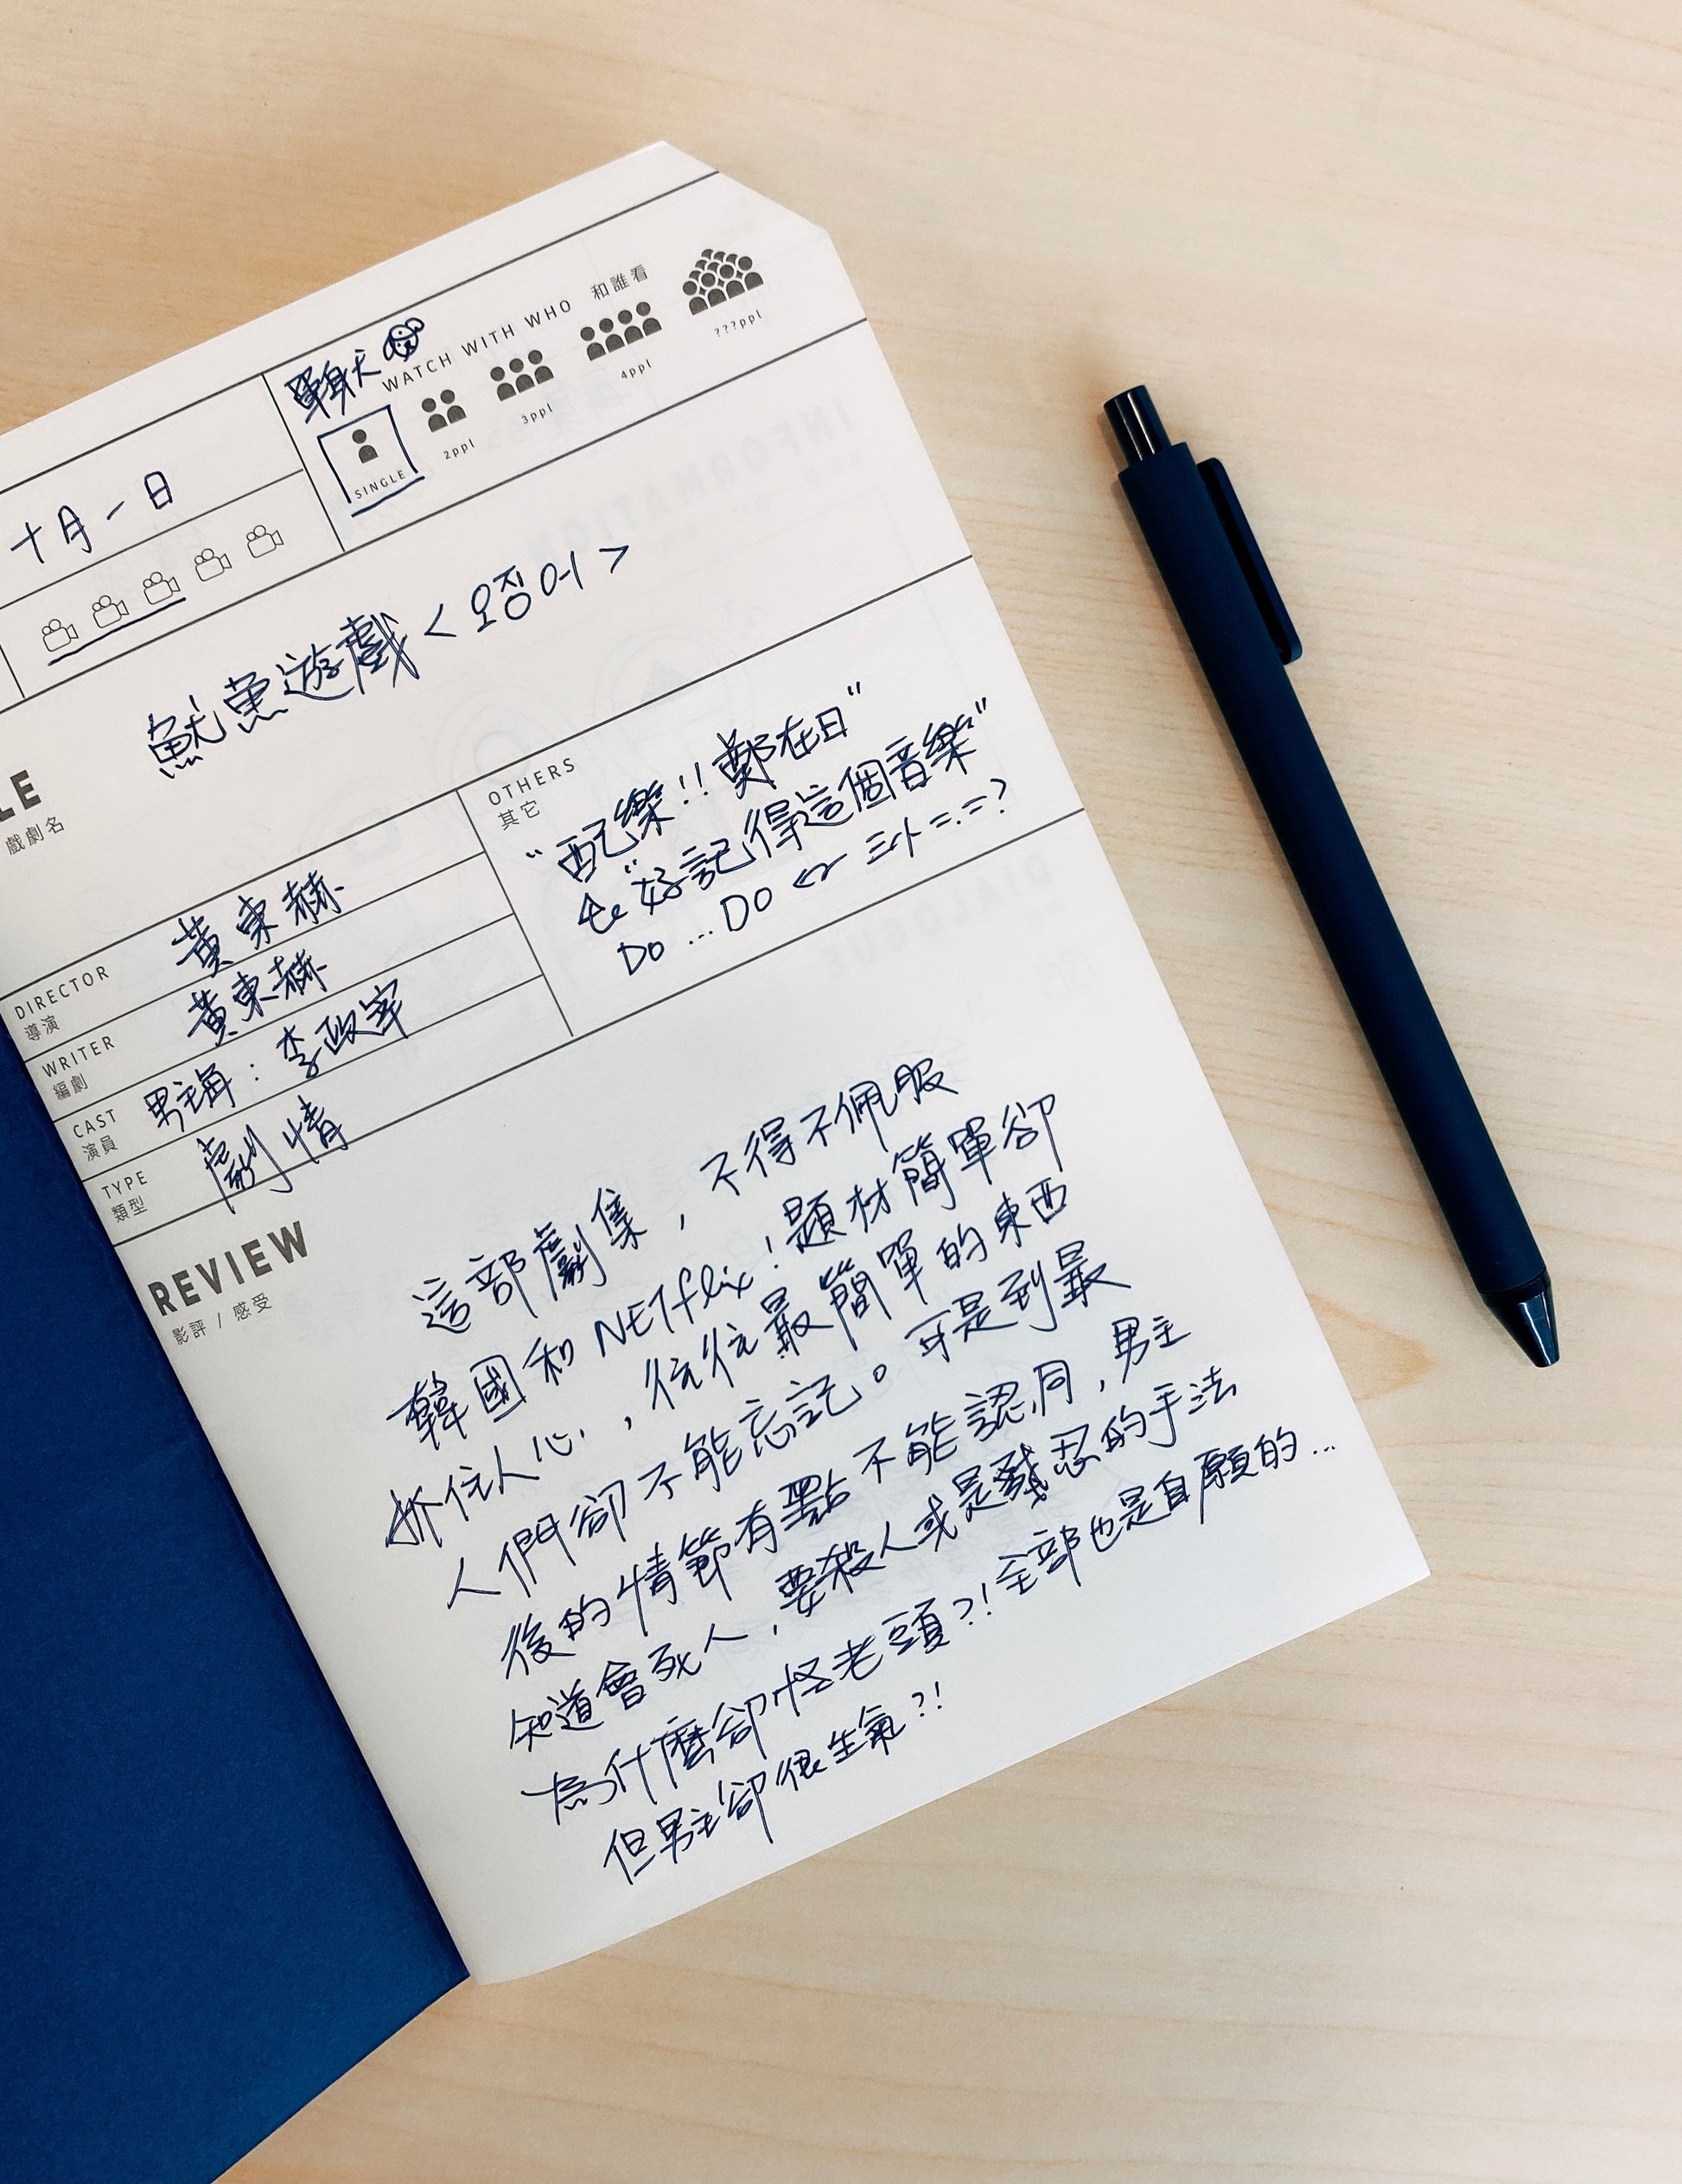 單身犬
WATCH WITH WHO 和誰看
SINGLE
2ppl
3ppl
4ppl
???ppl
十月一日
LE
戲劇名
魷魚遊戲 < 오징어 >
DIRECTOR
導演
黃東赫
WRITER
編劇
黃東赫
CAST
演員
男主角：李政宰
TYPE
類型
劇情
OTHERS
其它
“配樂!! 鄭在日”
“好記得這個音樂”
Do ... Do
REVIEW
影評 / 感受
這部劇集，不得不佩服
韓國和 NETflix！題材簡單卻
抓住人心，往往最簡單的東西
人們卻不能忘記。可是到最
後的情節有點不能認同，男主
知道會死人，要殺人或是殘忍的手法
為什麼卻怪老頭?! 全部也是自願的...
但男主卻很生氣?!